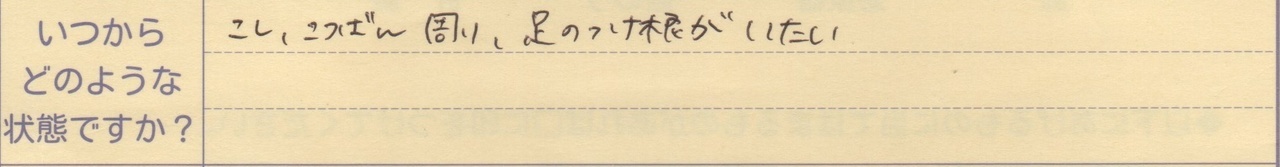 いつから
どのような
状態ですか？
こし、こつばん周り、足のつけ根がいたい